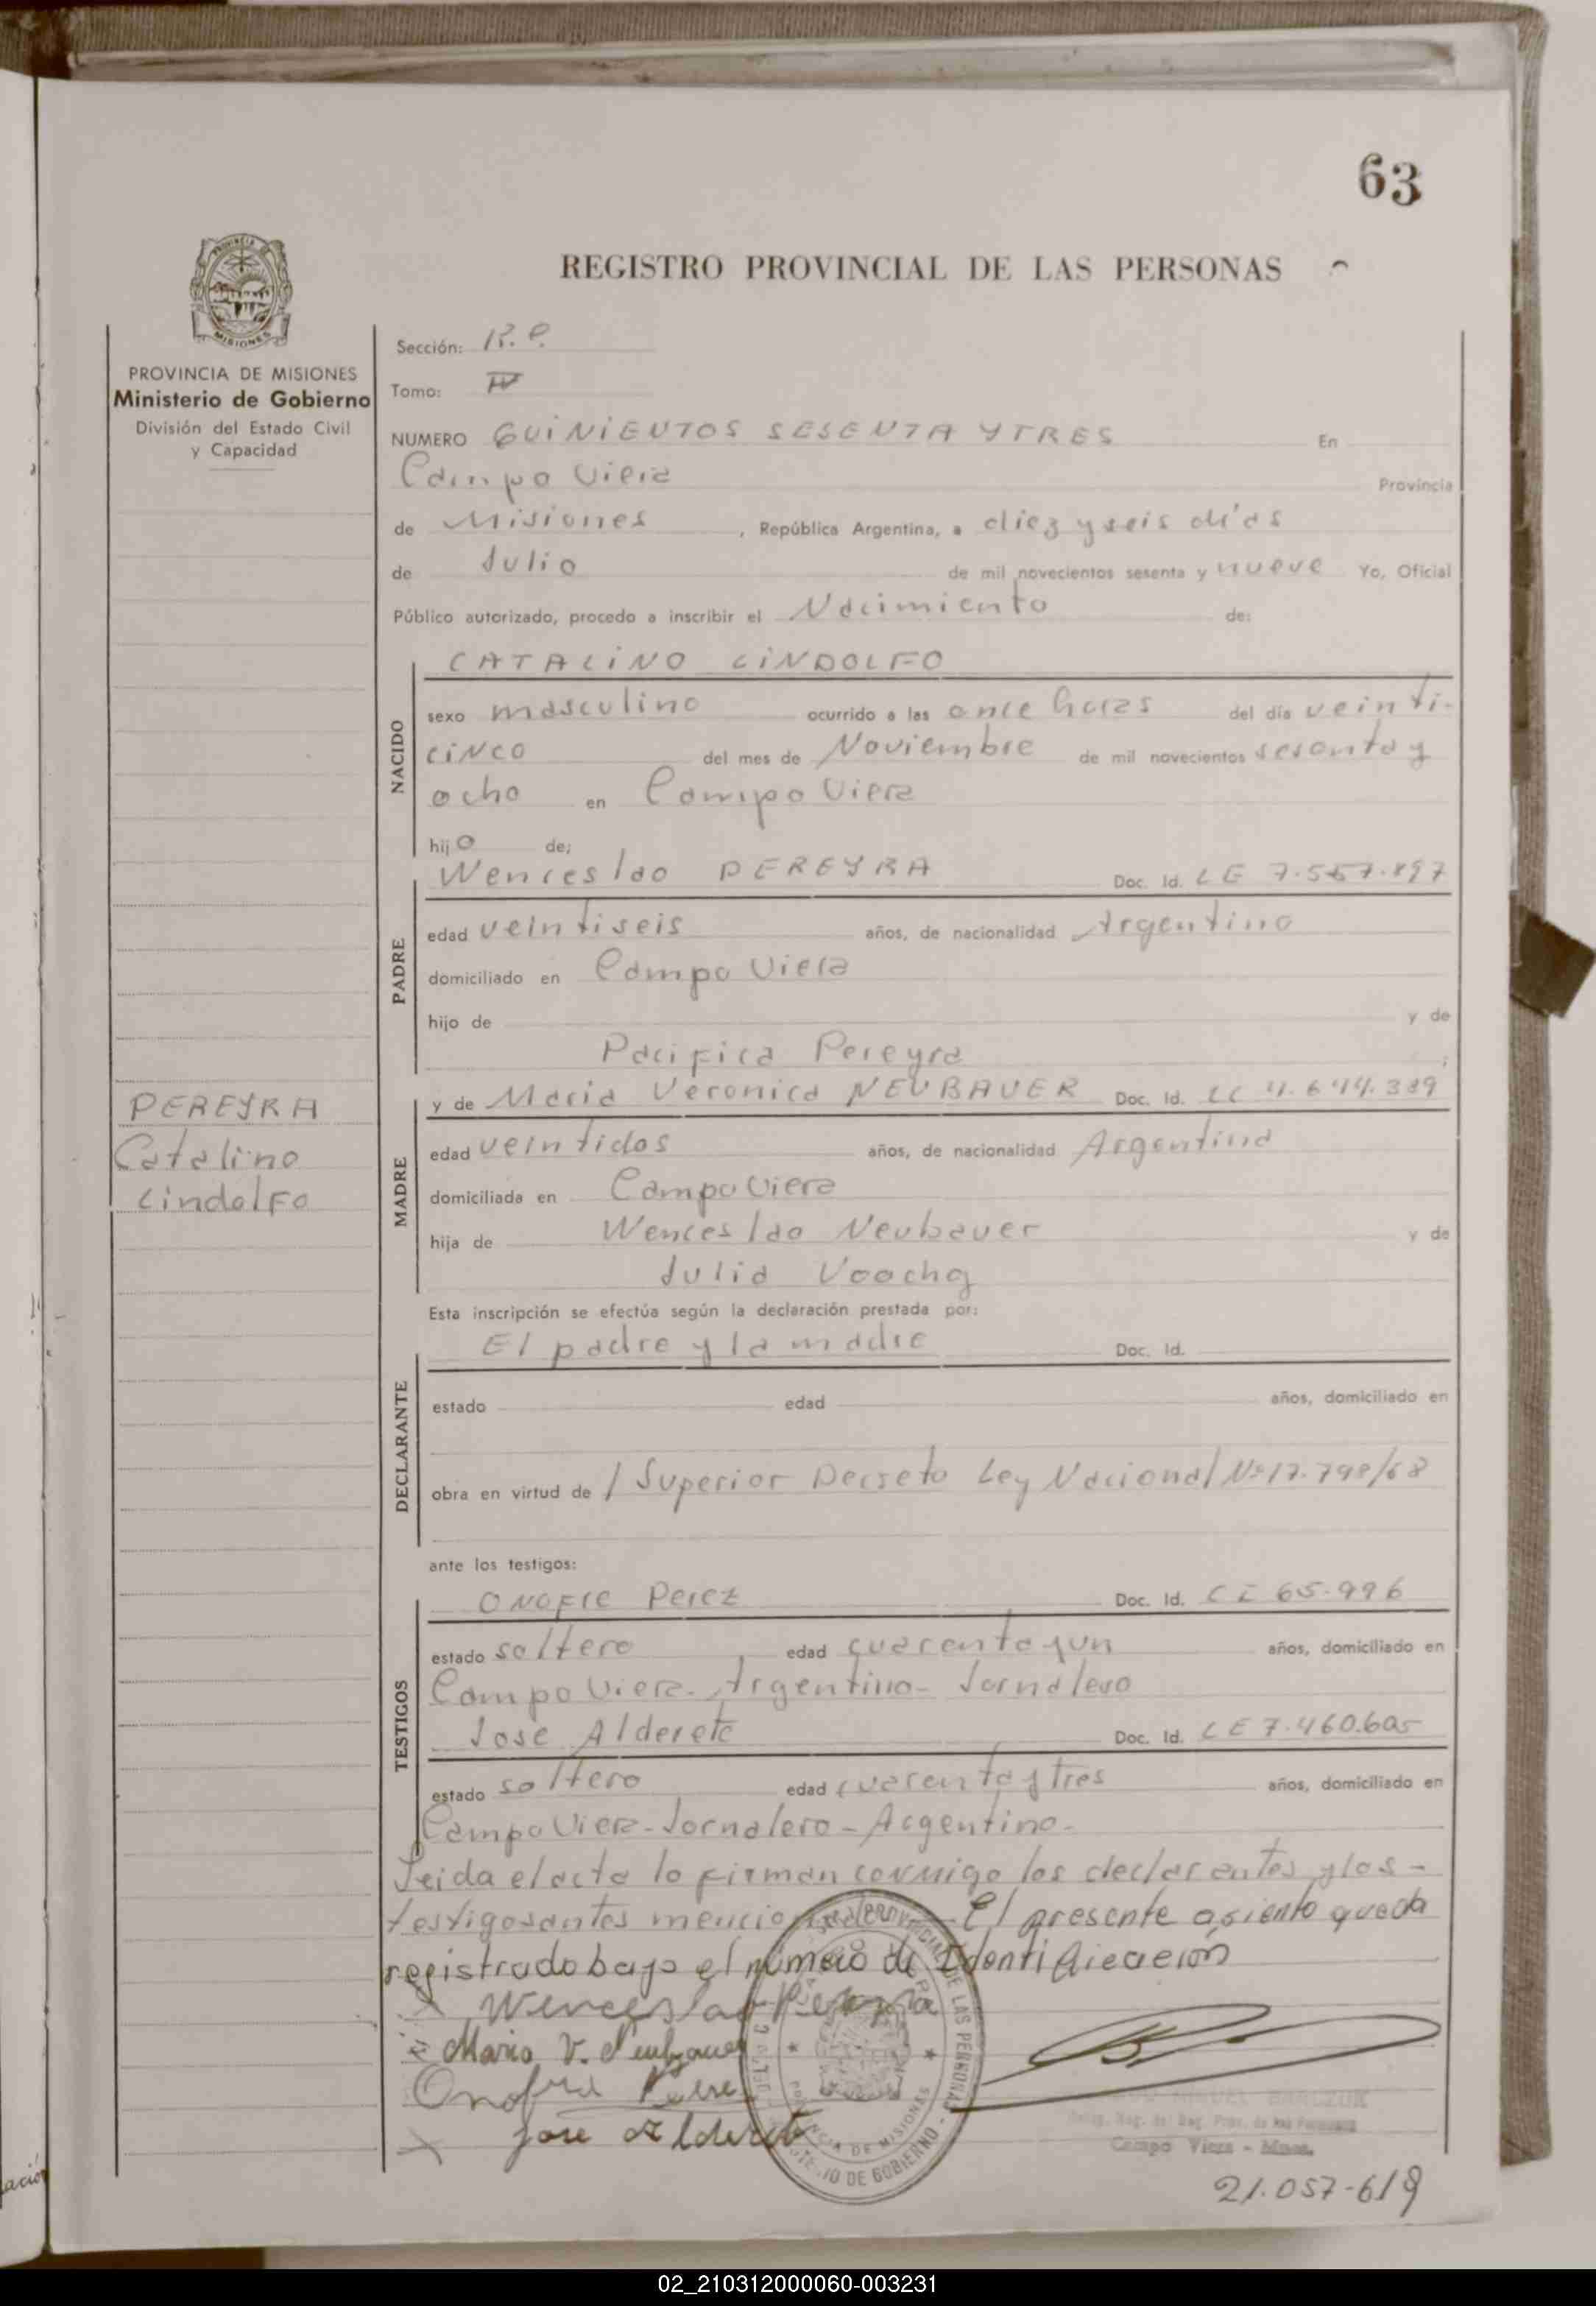 63
REGISTRO PROVINCIAL DE LAS PERSONAS
PROVINCIA DE MISIONES
Ministerio de Gobierno
División del Estado Civil
y Capacidad
Sección: R. P.
Tomo: IV
NUMERO QUINIENTOS SESENTA Y TRES En
Campo Viera Provincia
de Misiones, República Argentina, a diez y seis días
de Julio de mil novecientos sesenta y nueve Yo, Oficial
Público autorizado, procedo a inscribir el Nacimiento de:
NACIDO
CATALINO LINDOLFO
sexo masculino ocurrido a las once horas del día veinti-
cinco del mes de Noviembre de mil novecientos sesenta y
ocho en Campo Viera
hijo de;
PADRE
Wenceslao PEREYRA Doc. Id. LE 7.557.897
edad veintiseis años, de nacionalidad Argentino
domiciliado en Campo Viera
hijo de y de
Pacifica Pereyra;
PEREYRA
Catalino
Lindolfo
MADRE
y de Maria Veronica NEUBAUER Doc. Id. LC 4.644.389
edad veintidos años, de nacionalidad Argentina
domiciliada en Campo Viera
hija de Wenceslao Neubauer y de
Julia Voochg
Esta inscripción se efectúa según la declaración prestada por:
DECLARANTE
El padre y la madre Doc. Id.
estado edad años, domiciliado en
obra en virtud de / Superior Decreto Ley Nacional Nº 17.798/68
ante los testigos:
TESTIGOS
Onofre Perez Doc. Id. CI 65.996
estado soltero edad cuarenta y un años, domiciliado en
Campo Viera - Argentino - Jornalero
Jose Alderete Doc. Id. LE 7.460.605
estado soltero edad cuarenta y tres años, domiciliado en
Campo Viera - Jornalero - Argentino -
Leida el acta lo firman conmigo los declarantes y los -
testigos antes mencionados - El presente asiento queda
registrado bajo el número de Identificación
Wenceslao Pereyra
Maria V. Neubauer
Onofre Perez
Jose Alderete
PROVINCIA DE MISIONES
Campo Viera - Mnes.
21.057-619
02_210312000060-003231